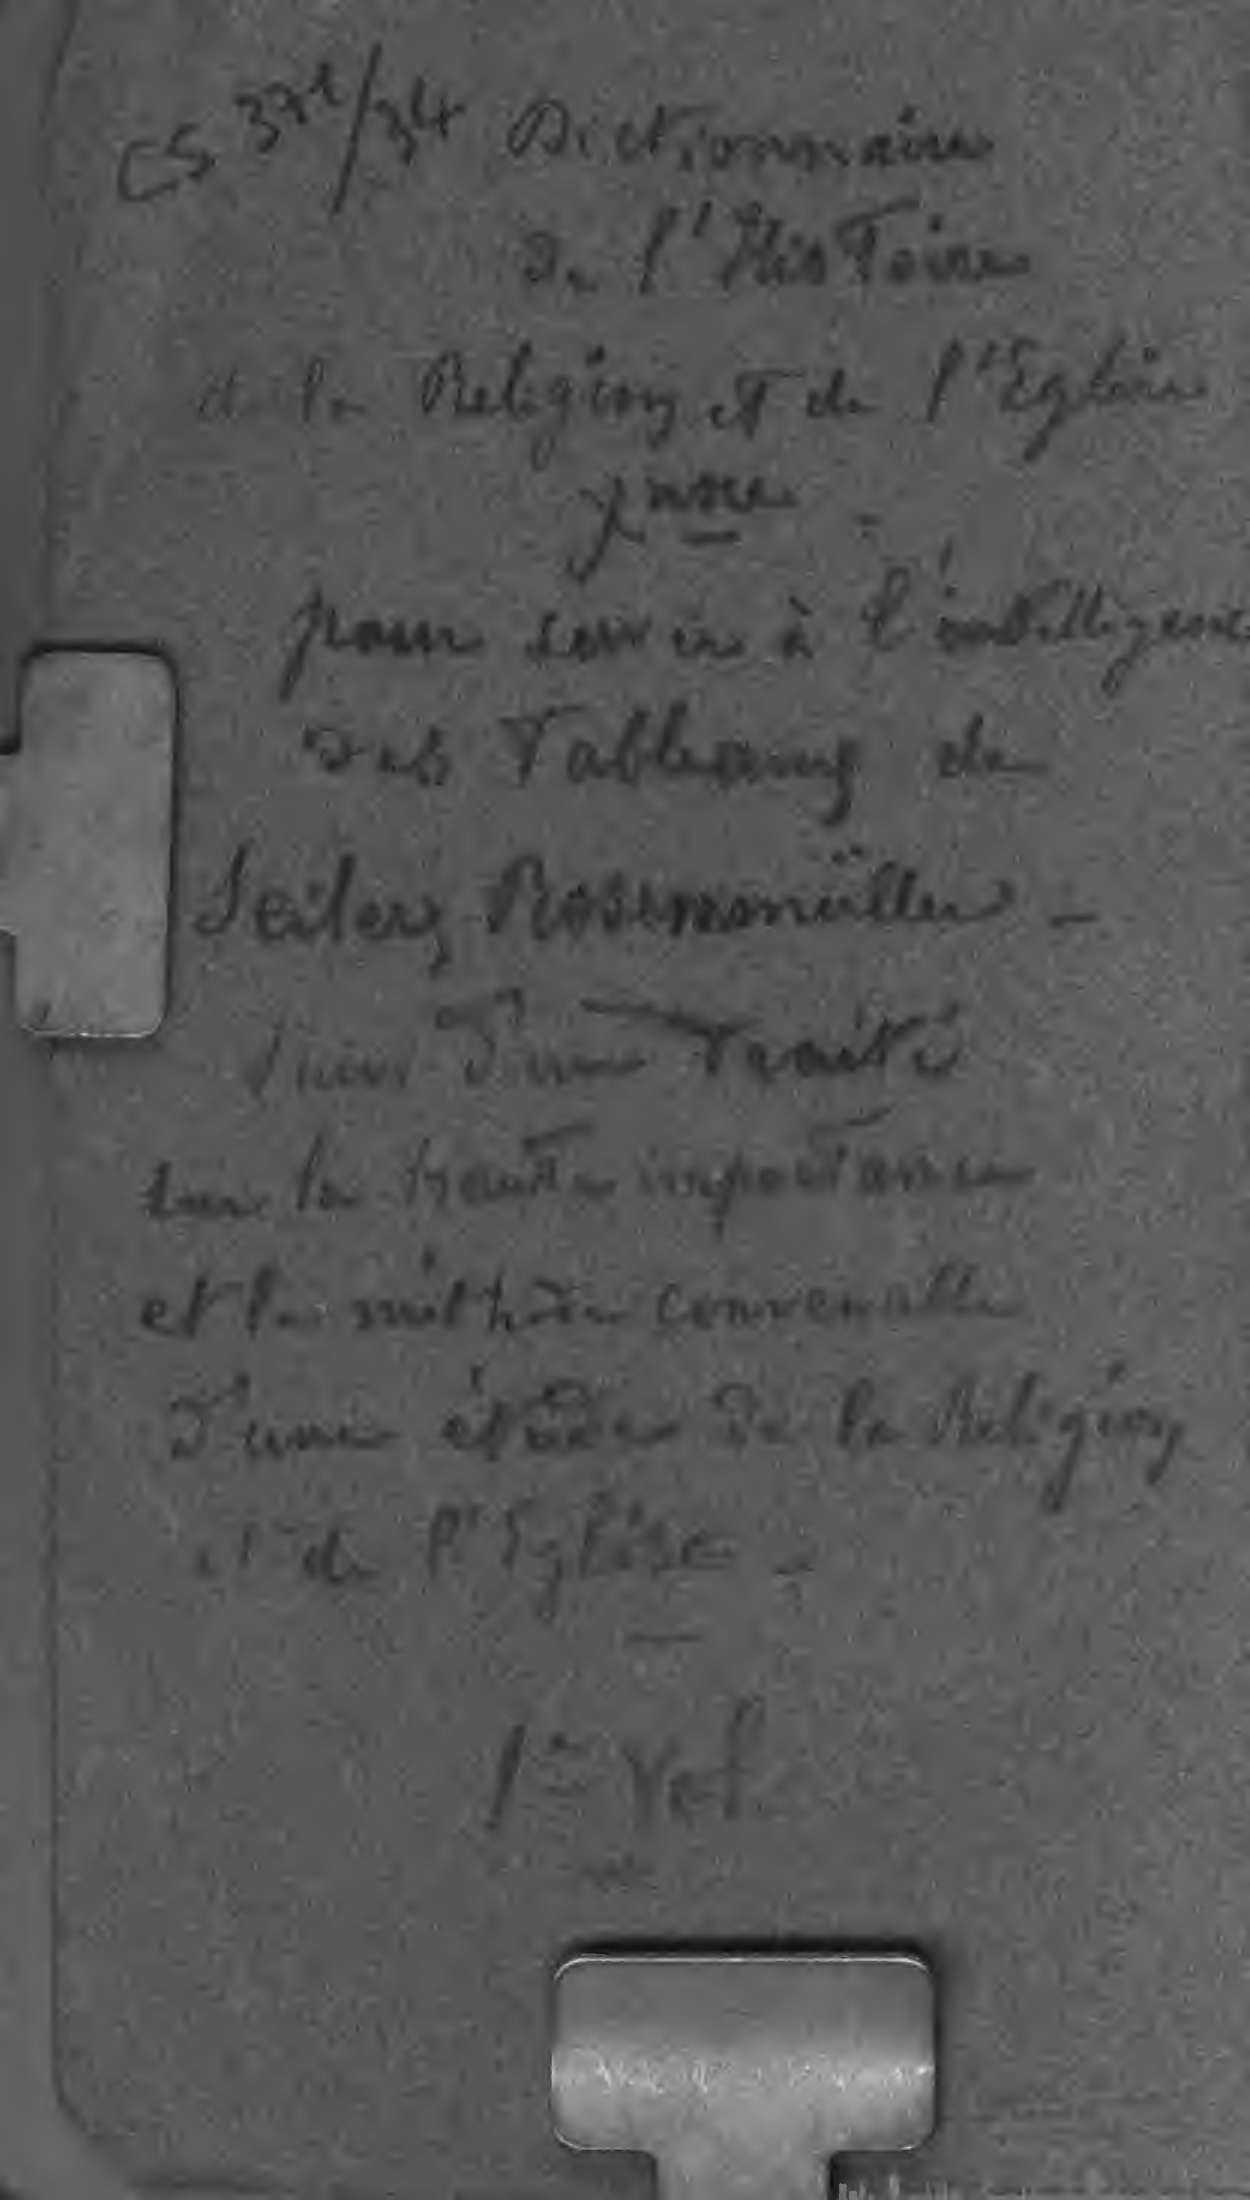 CS 37¹/34 Dictionnaire
de l'Histoire
de la Religion et de l'Eglise
χnne
pour servir à l'intelligence
des Tableaux de
Seiler, Rosenmüller –
suivi d'un Traité
sur la haute importance
et la méthode convenable
d'une étude de la Religion
et de l'Eglise –
1er Vol